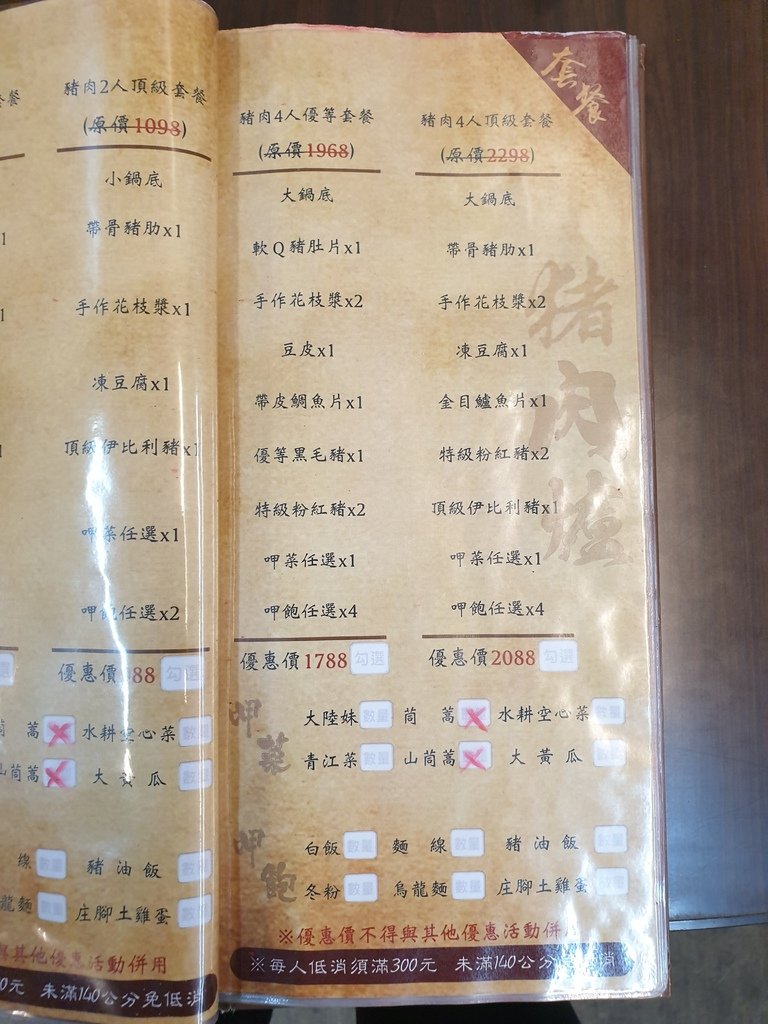 套餐
豬肉爐
套餐
豬肉2人頂級套餐
(原價1098)
小鍋底
帶骨豬肋x1
手作花枝漿x1
凍豆腐x1
頂級伊比利豬x1
呷菜任選x1
呷飽任選x2
優惠價 88 勾選
茼 蒿 水耕空心菜 數量
山茼蒿 大黃瓜 數量
線 數量 豬油飯 數量
龍麵 數量 庄腳土雞蛋 數量
與其他優惠活動併用
0元 未滿140公分免低消
豬肉4人優等套餐
(原價1968)
大鍋底
軟Q豬肚片x1
手作花枝漿x2
豆皮x1
帶皮鯛魚片x1
優等黑毛豬x1
特級粉紅豬x2
呷菜任選x1
呷飽任選x4
優惠價1788 勾選
豬肉4人頂級套餐
(原價2298)
大鍋底
帶骨豬肋x1
手作花枝漿x2
凍豆腐x1
金目鱸魚片x1
特級粉紅豬x2
頂級伊比利豬x1
呷菜任選x1
呷飽任選x4
優惠價2088 勾選
呷菜
大陸妹 數量 茼 蒿 水耕空心菜 數量
青江菜 數量 山茼蒿 大黃瓜 數量
呷飽
白飯 數量 麵 線 數量 豬油飯 數量
冬粉 數量 烏龍麵 數量 庄腳土雞蛋 數量
※優惠價不得與其他優惠活動併用
※每人低消須滿300元 未滿140公分 消